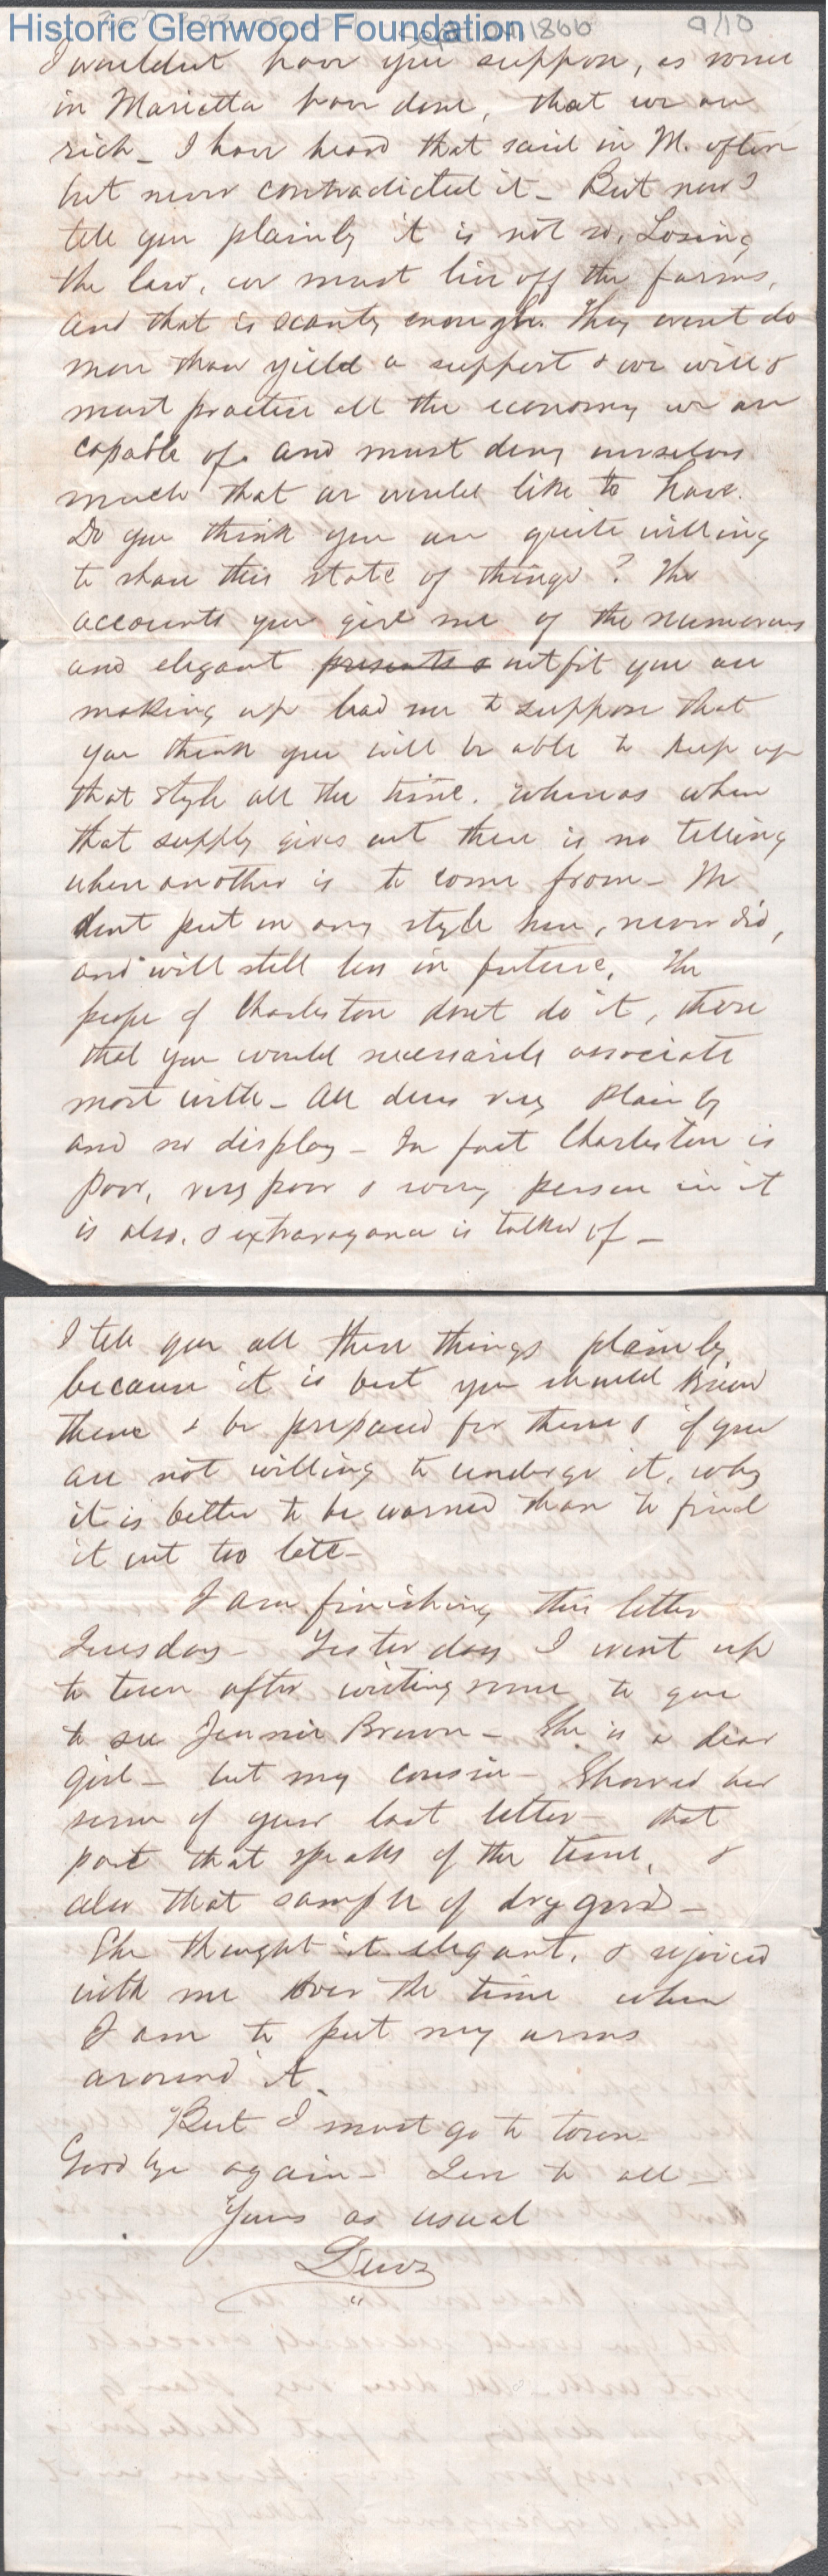 Historic Glenwood Foundation
1866 9/10
I wouldnt have you suppose, as some
in Marietta have done, that we are
rich - I have heard that said in M. often
but never contradicted it - But now I
tell you plainly it is not so. Losing
the law, we must live off the farms,
and that is scanty enough. They wont do
more than yield a support & we will &
must practice all the economy we are
capable of. and must deny ourselves
much that we would like to have.
Do you think you are quite willing
to share this state of things? The
accounts you give me of the numerous
and elegant presents & outfit you are
making up lead me to suppose that
you think you will be able to keep up
that style all the time. whereas when
that supply gives out there is no telling
where another is to come from - We
dont put on any style here, never did,
and will still less in future. The
people of Charleston dont do it, those
that you would necessarily associate
most with - All dress very plainly
and no display - In fact Charleston is
poor, very poor & every person in it
is also. & extravagance is talked of -
I tell you all these things plainly
because it is best you should know
them & be prepared for them & if you
are not willing to undergo it, why
it is better to be warned than to find
it out too late -
I am finishing this letter
Tuesday - Yesterday I went up
to town after writing some to you
to see Jennie Brown - She is a dear
girl - but my cousin - Showed her
some of your last letter - that
part that speaks of the time, &
also that sample of dry goods -
She thought it elegant, & rejoiced
with me over the time when
I am to put my arms
around it.
But I must go to town -
Good bye again - Love to all -
Yours as usual